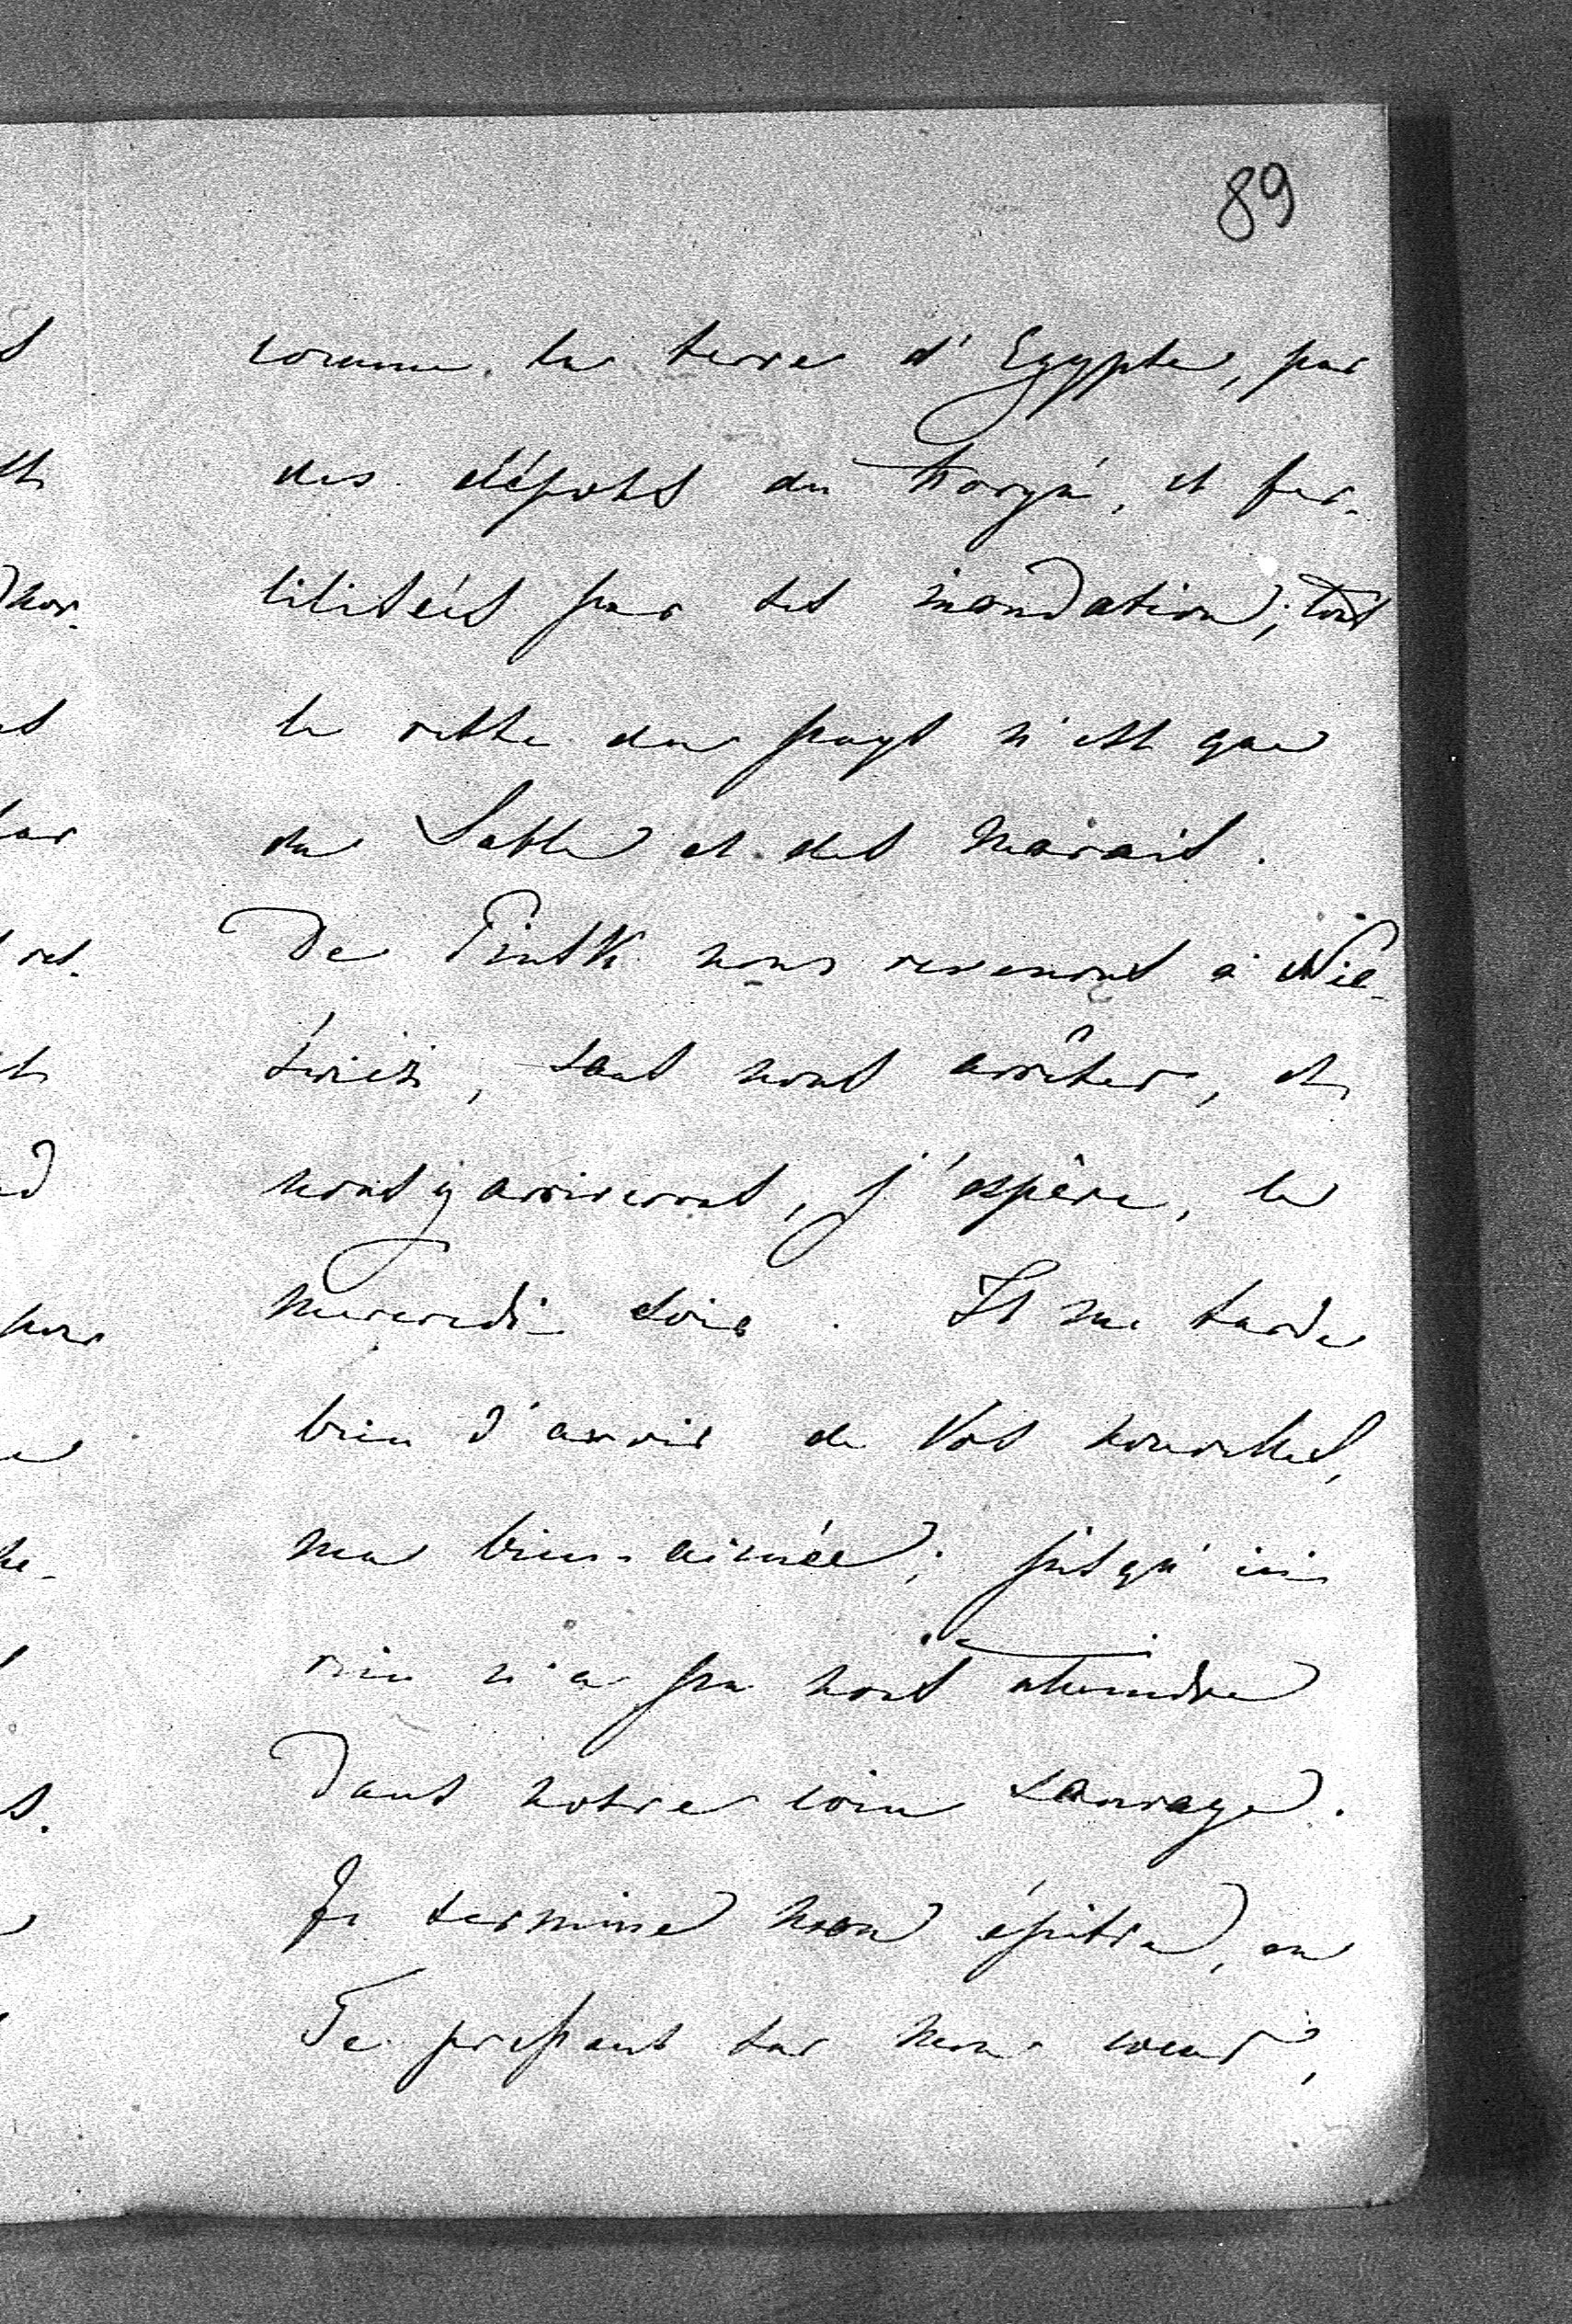 89
comme la terre d'Egypte, par
des dépots du Horyn, et fer-
tilisées par ses inondation; tout
le reste du pays n'est que
du Sable et des Marais.
De Pinsk nous revenons à Nie-
świéz, sans nous arrêter, et
nous y arriverons, j'espère, le
mercredi soir. Il me tarde
bien d'avoir de Vos nouvelles,
ma bien-aimée; jusqu'ici
rien n'a pu nous atteindre
Dans notre coin sauvage.
Je termine mon épitre, en
Te pressant sur mon coeur,